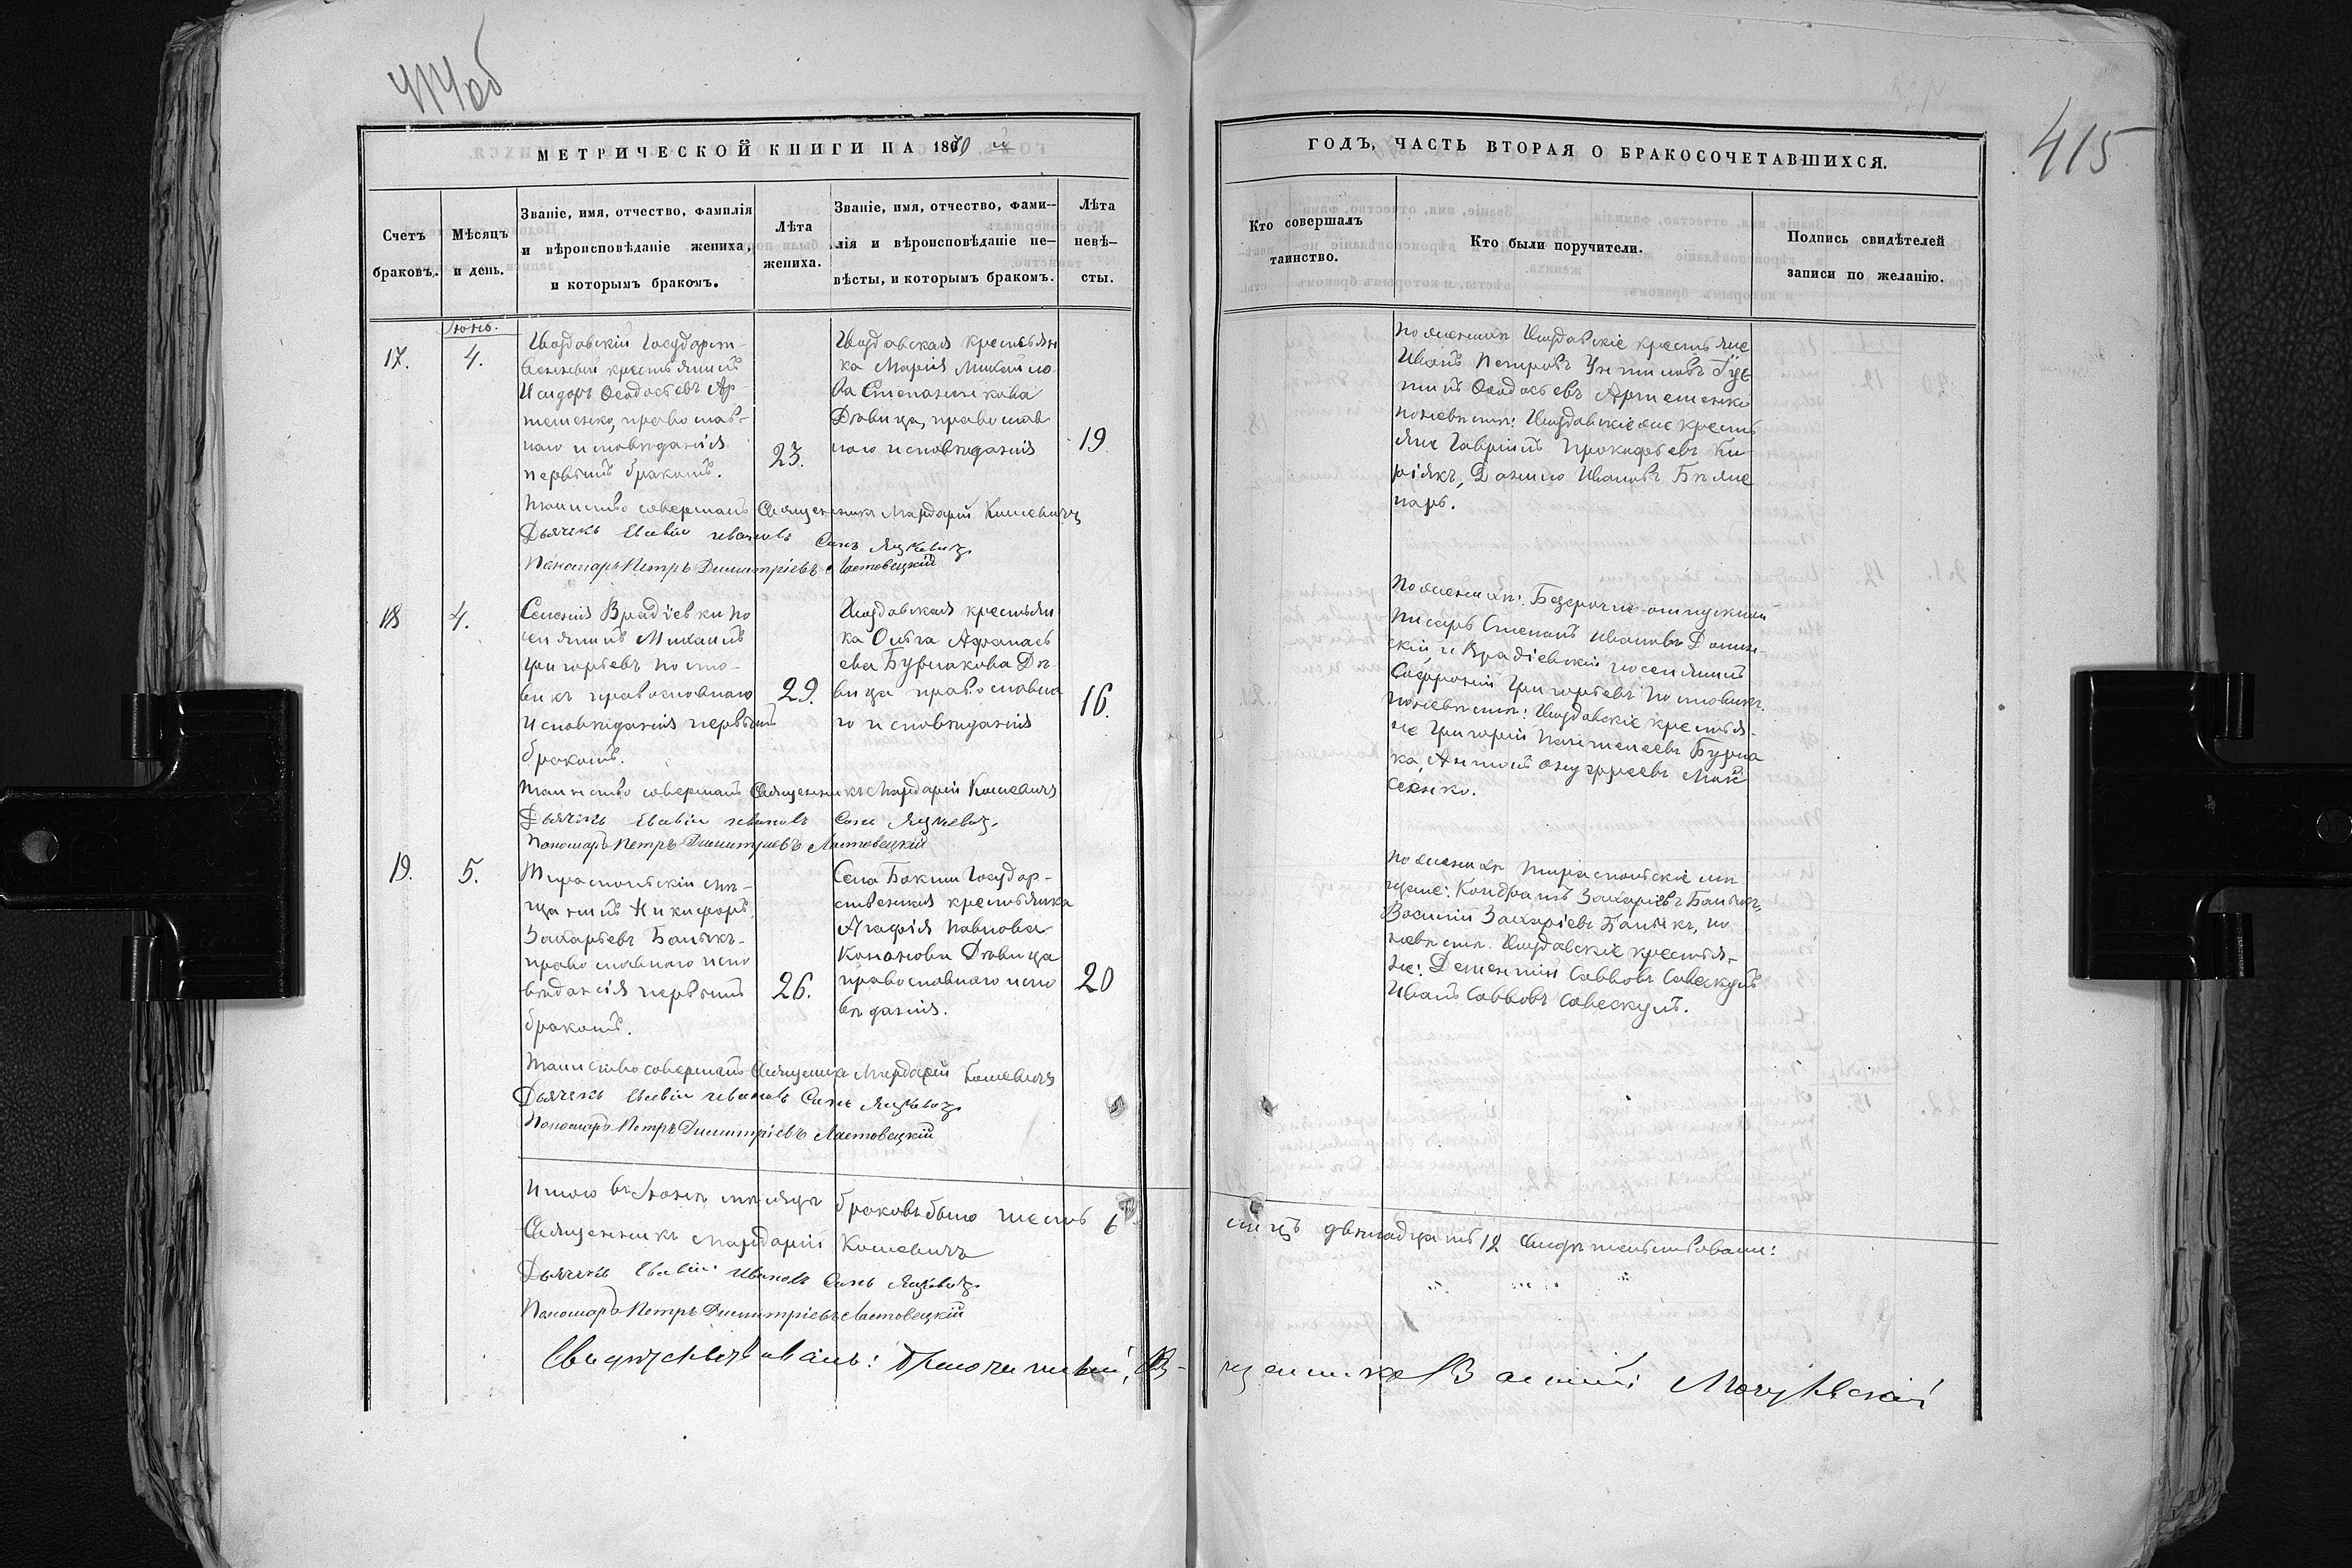 414об
МЕТРИЧЕСКОЙ КНИГИ НА 1870 й
Счетъ браковъ.
Мѣсяцъ и день.
Званіе, имя, отчество, фамилія
и вѣроисповѣданіе жениха,
и которымъ бракомъ.
Лѣта
жениха.
Званіе, имя, отчество, фами-
лія и вѣроисповѣданіе не-
вѣсты, и которымъ бракомъ.
Лѣта
невѣ-
сты.
Іюнь.
17.
4.
Государст-
венный крестьянинъ
Исидоръ Ѳеодосьевъ Ар-
теменко, православ-
наго исповѣданія
первымъ бракомъ.
23.
крестьян
ка Марія Михайло
ва Степанникова
Дѣвица, православ
наго исповѣданія
19
Таинство совершалъ Священникъ Мардарій Кошевичъ
Дьячекъ Ивановъ Сынъ Яцкевич
Пономарь Петръ Димитріевъ Ластовецкій
18
4.
Селенія Врадіевки по
селянинъ Михаилъ
Григорьевъ Посто-
викъ православнаго
исповѣданія первымъ
бракомъ.
29.
крестьян
ка Ольга Афанась
ева Бурлакова Дѣ-
вица православна
го исповѣданія
16.
Таинство совершалъ Священникъ Мардарій Кошевичъ
Дьячекъ Ивановъ Сынъ Яцкевич.
Пономарь Петръ Димитріевъ Ластовецкій
19.
5.
Тираспольскій мѣ-
щанинъ Никифоръ
Захарьевъ Балыкъ-
православнаго испо
вѣданія первымъ
бракомъ.
26.
Села Бакши Государ-
ственная крестьянка
Агафія Павлова
Кононова Дѣвица
православнаго испо
вѣданія.
20
Таинство совершалъ Священникъ Мардарій Кошевичъ
Дьячекъ Ивановъ Сынъ Яцкевич
Пономарь Петръ Димитріевъ Ластовецкій
Итого въ Іюнѣ мѣсяцѣ браковъ было шесть 6
Священникъ Мардарій Кошевичъ
Дьячекъ Ивановъ Сынъ Яцкевич
Пономарь Петръ Димитріевъ Ластовецкій
Свидѣтельствовалъ: Благочинный, Свя-
415
ГОДЪ, ЧАСТЬ ВТОРАЯ О БРАКОСОЧЕТАВШИХСЯ.
Кто совершалъ
таинство.
Кто были поручители.
Подпись свидѣтелей
записи по желанію.
По женихѣ крестьяне
Иванъ Петровъ
Ѳеодосьевъ Артеменко
по невѣстѣ: же кресть
яне Гавріилъ Прокофьевъ Ки-
ріякъ, Данило Ивановъ
нарь.
По женихѣ: Безсрочно-отпускной
писарь Степанъ Ивановъ
скій, и Врадіевскій поселянинъ
Софроній Григорьевъ Постовикъ.
по невѣстѣ: крестья-
не Григорій Пантелеевъ Бурла
ка, Антонъ Онуфріевъ Мой
сеенко.
По женихѣ Тираспольскіе мѣ
щане: Кондратъ Захаріевъ Балыкъ,
Василій Захаріевъ Балыкъ, по
невѣстѣ. крестья-
не: Дементій Савовъ
Иванъ Савовъ
лицъ двѣнадцать 12 свидѣтельствовали:
щенникъ Василій